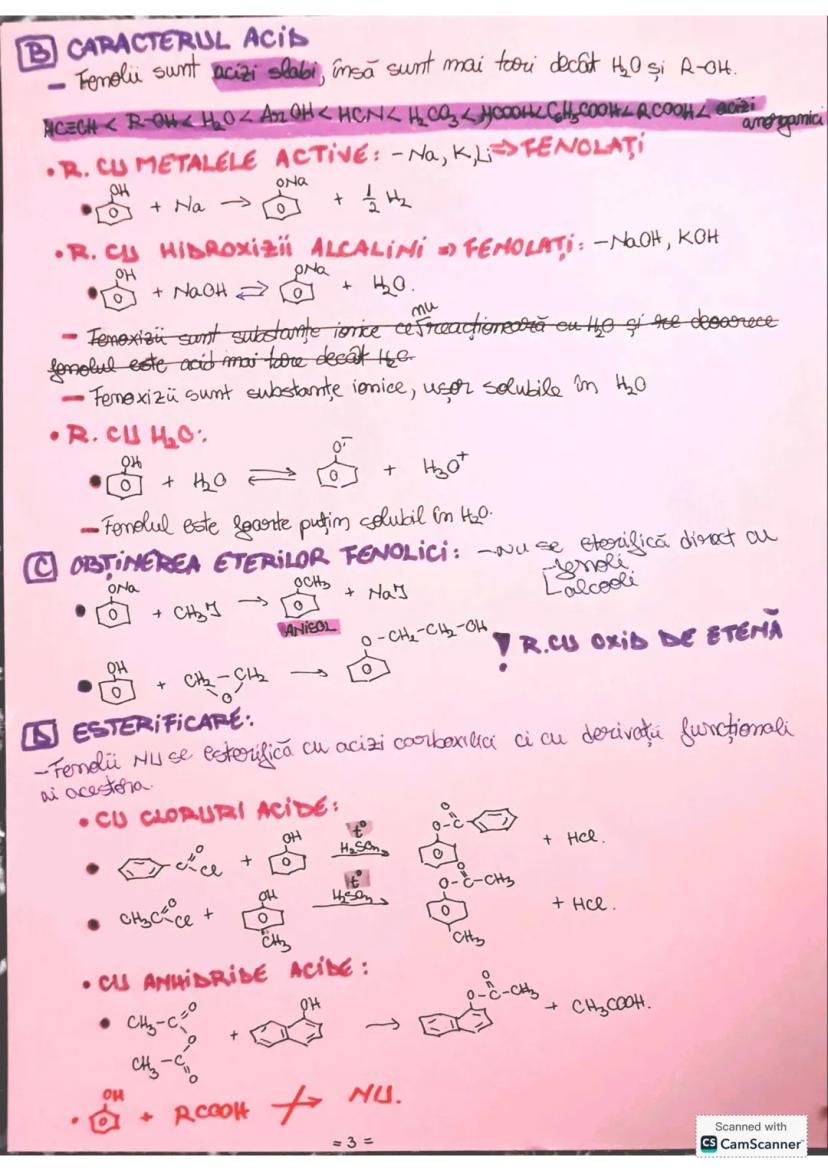 B CARACTERUL ACID
- Fenolii sunt acizi slabi, însă sunt mai tari decât H₂O și R-OH.
HC≡CH < R-OH < H₂O < ArOH < HCN < H₂CO₃ < HCOOH < C₆H₅COOH < RCOOH < acizi
anorganici
• R. CU METALELE ACTIVE: - Na, K, Li ⇒ FENOLAȚI
OH ONa
• + Na → + 1/2 H₂
• R. CU HIDROXIZII ALCALINI ⇒ FENOLAȚI: - NaOH, KOH
OH ONa
• + NaOH ⇌ + H₂O.
nu
- Fenoxizii sunt substanțe ionice ce reacționează cu H₂O și deoarece
fenolul este acid mai tare decât H₂O.
- Fenoxizii sunt substanțe ionice, ușor solubile în H₂O
• R. CU H₂O:
OH O⁻
• + H₂O ⇌ + H₃O⁺
- Fenolul este foarte puțin solubil în H₂O.
C OBȚINEREA ETERILOR FENOLICI: - Nu se eterifică direct cu
fenoli
alcooli
ONa OCH₃
• + CH₃I → + NaI
ANISOL
O-CH₂-CH₂-OH
! R. CU OXID DE ETENĂ
OH
• + CH₂-CH₂ →
O
D ESTERIFICARE:
- Fenolii NU se esterifică cu acizi carboxilici ci cu derivații funcționali
ai acestora.
• CU CLORURI ACIDE:
O
O-C-
O OH t°
• C-Cl + H₂SO₄ → + HCl.
O
OH t° O-C-CH₃
• CH₃C-Cl O + H₂SO₄ → + HCl.
CH₃ CH₃
• CU ANHIDRIDE ACIDE:
O
O OH O-C-CH₃
• CH₃-C + → + CH₃COOH.
O
CH₃-C
O
OH
• + RCOOH ↛ NU.
= 3 =
Scanned with
CS CamScanner